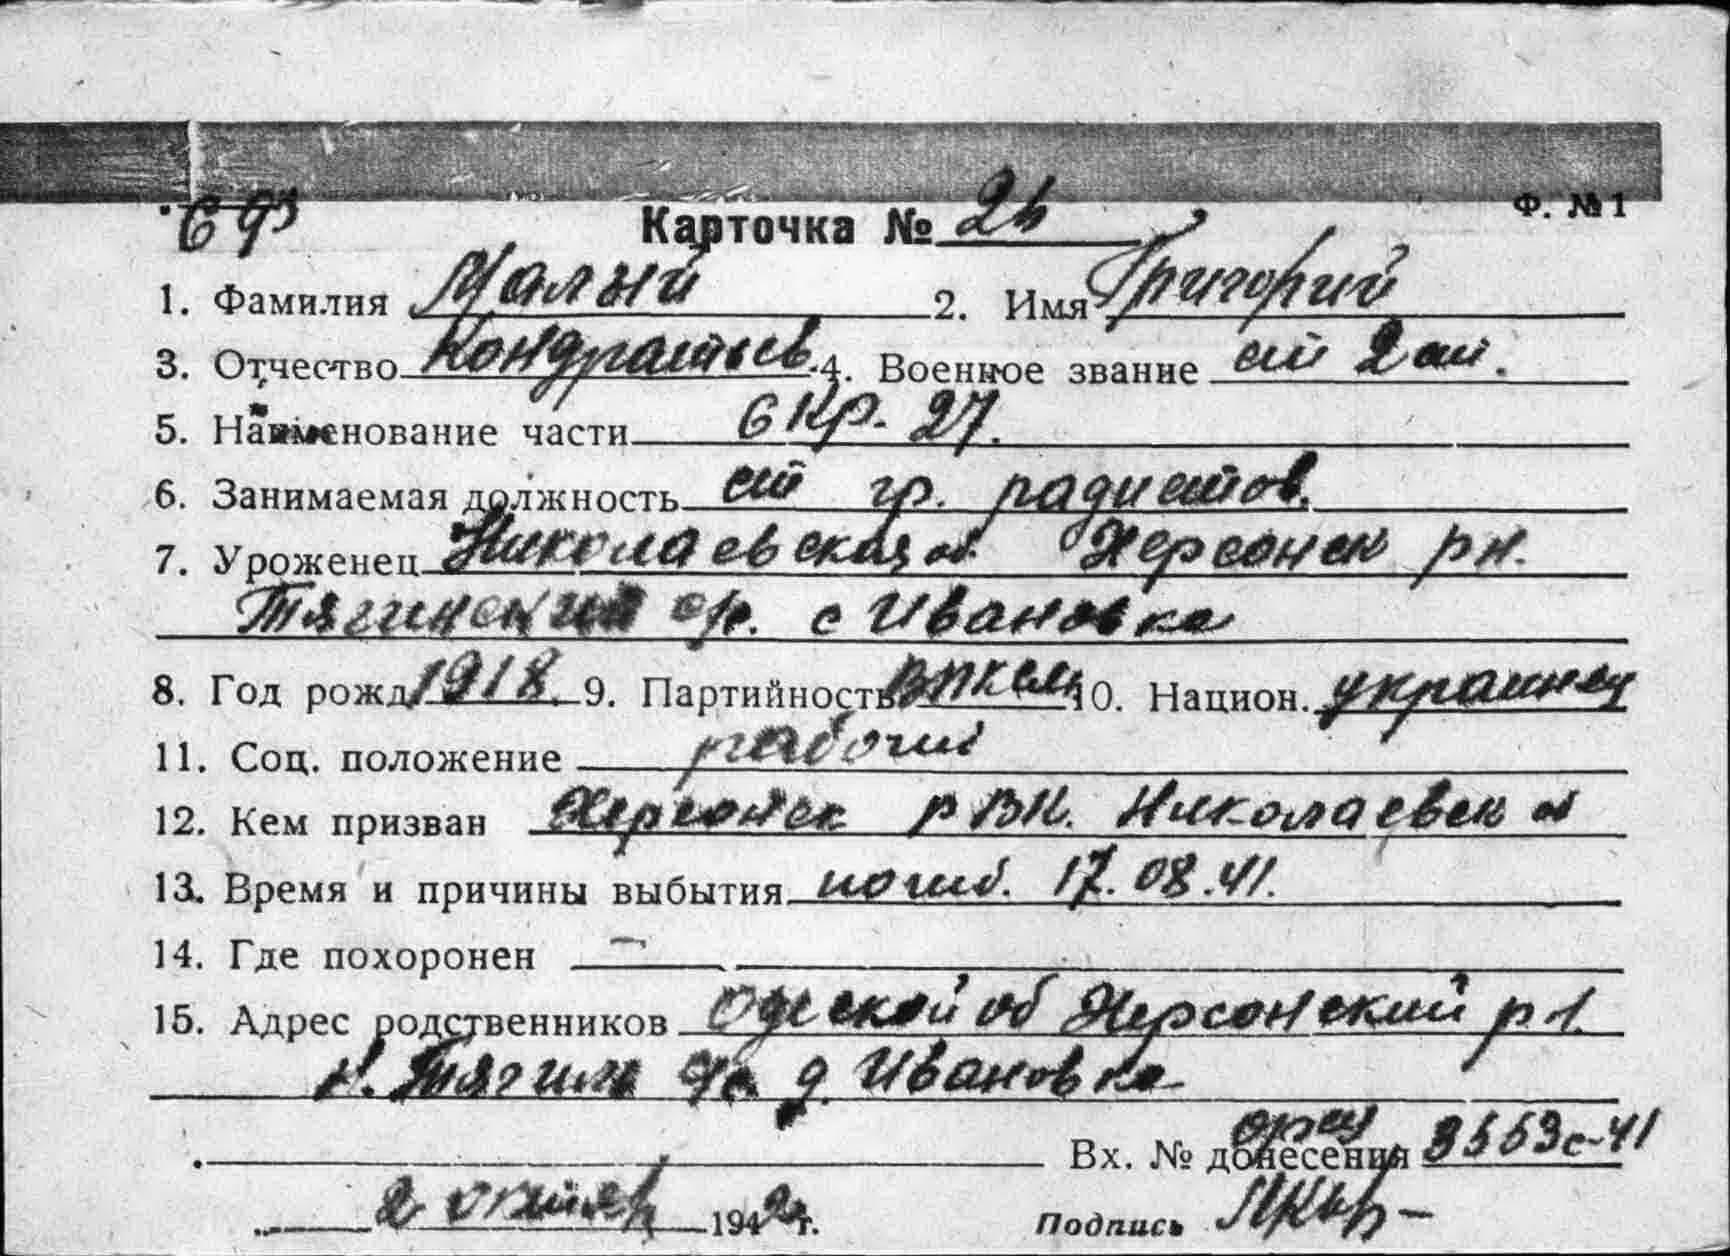 Ф. № 1
Карточка №
1. Фамилия Малый 2. Имя Григорий
3. Отчество Кондратьев. 4. Военное звание ст 2 ст.
5. Наименование части 6 Кр. 27.
6. Занимаемая должность ст гр. радистов.
7. Уроженец Николаевская об Херсонск рн.
Тягинский с/с. с Ивановка
8. Год рожд 1918. 9. Партийность 10. Национ. украинец
11. Соц. положение рабочий
12. Кем призван Херсонск РВК. Николаевск об
13. Время и причины выбытия погиб. 17.08.41.
14. Где похоронен —
15. Адрес родственников Одеской об Херсонский р-н.
д Ивановка
Вх. № донесения
2 октяб 1942 г. Подпись